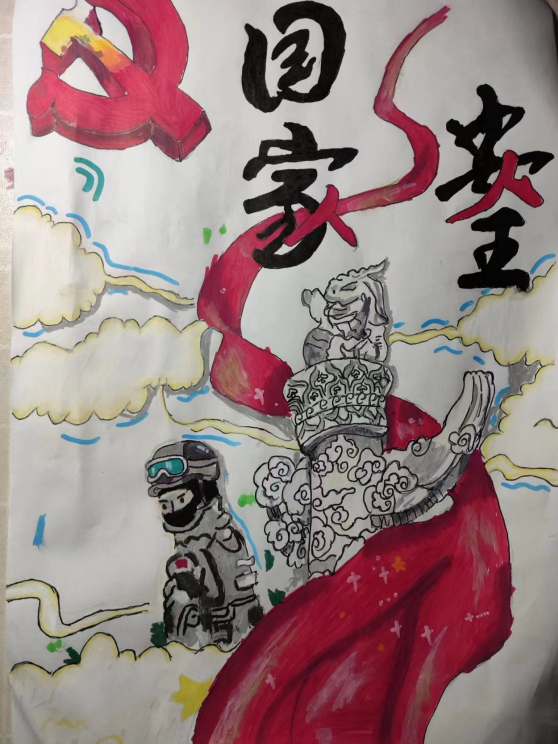 国家
安全